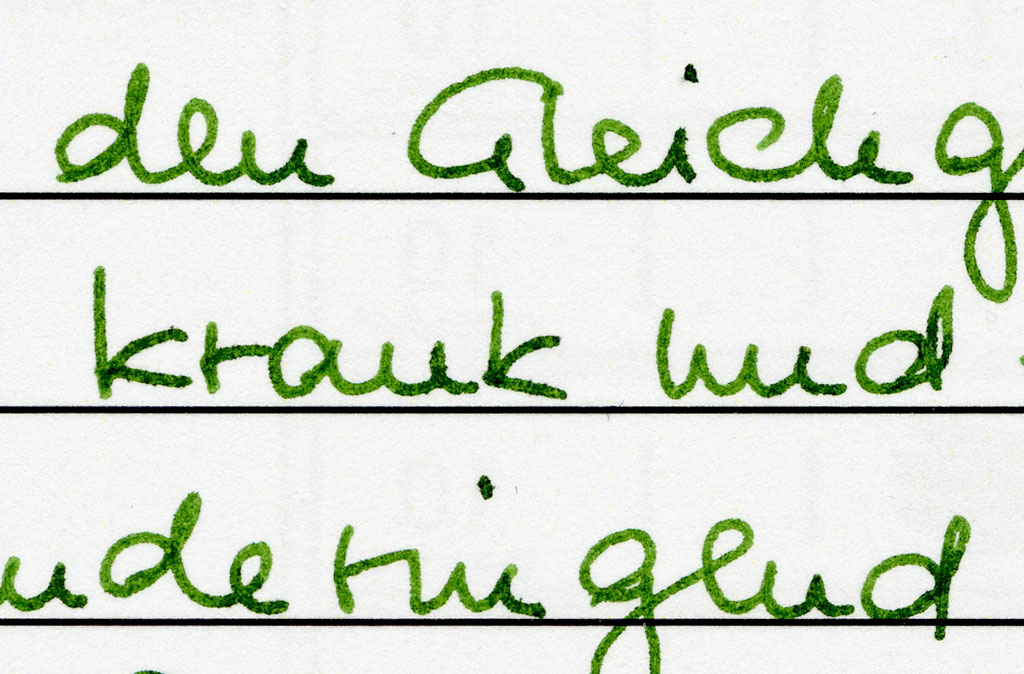 den Gleichg
krank und
nde ringend